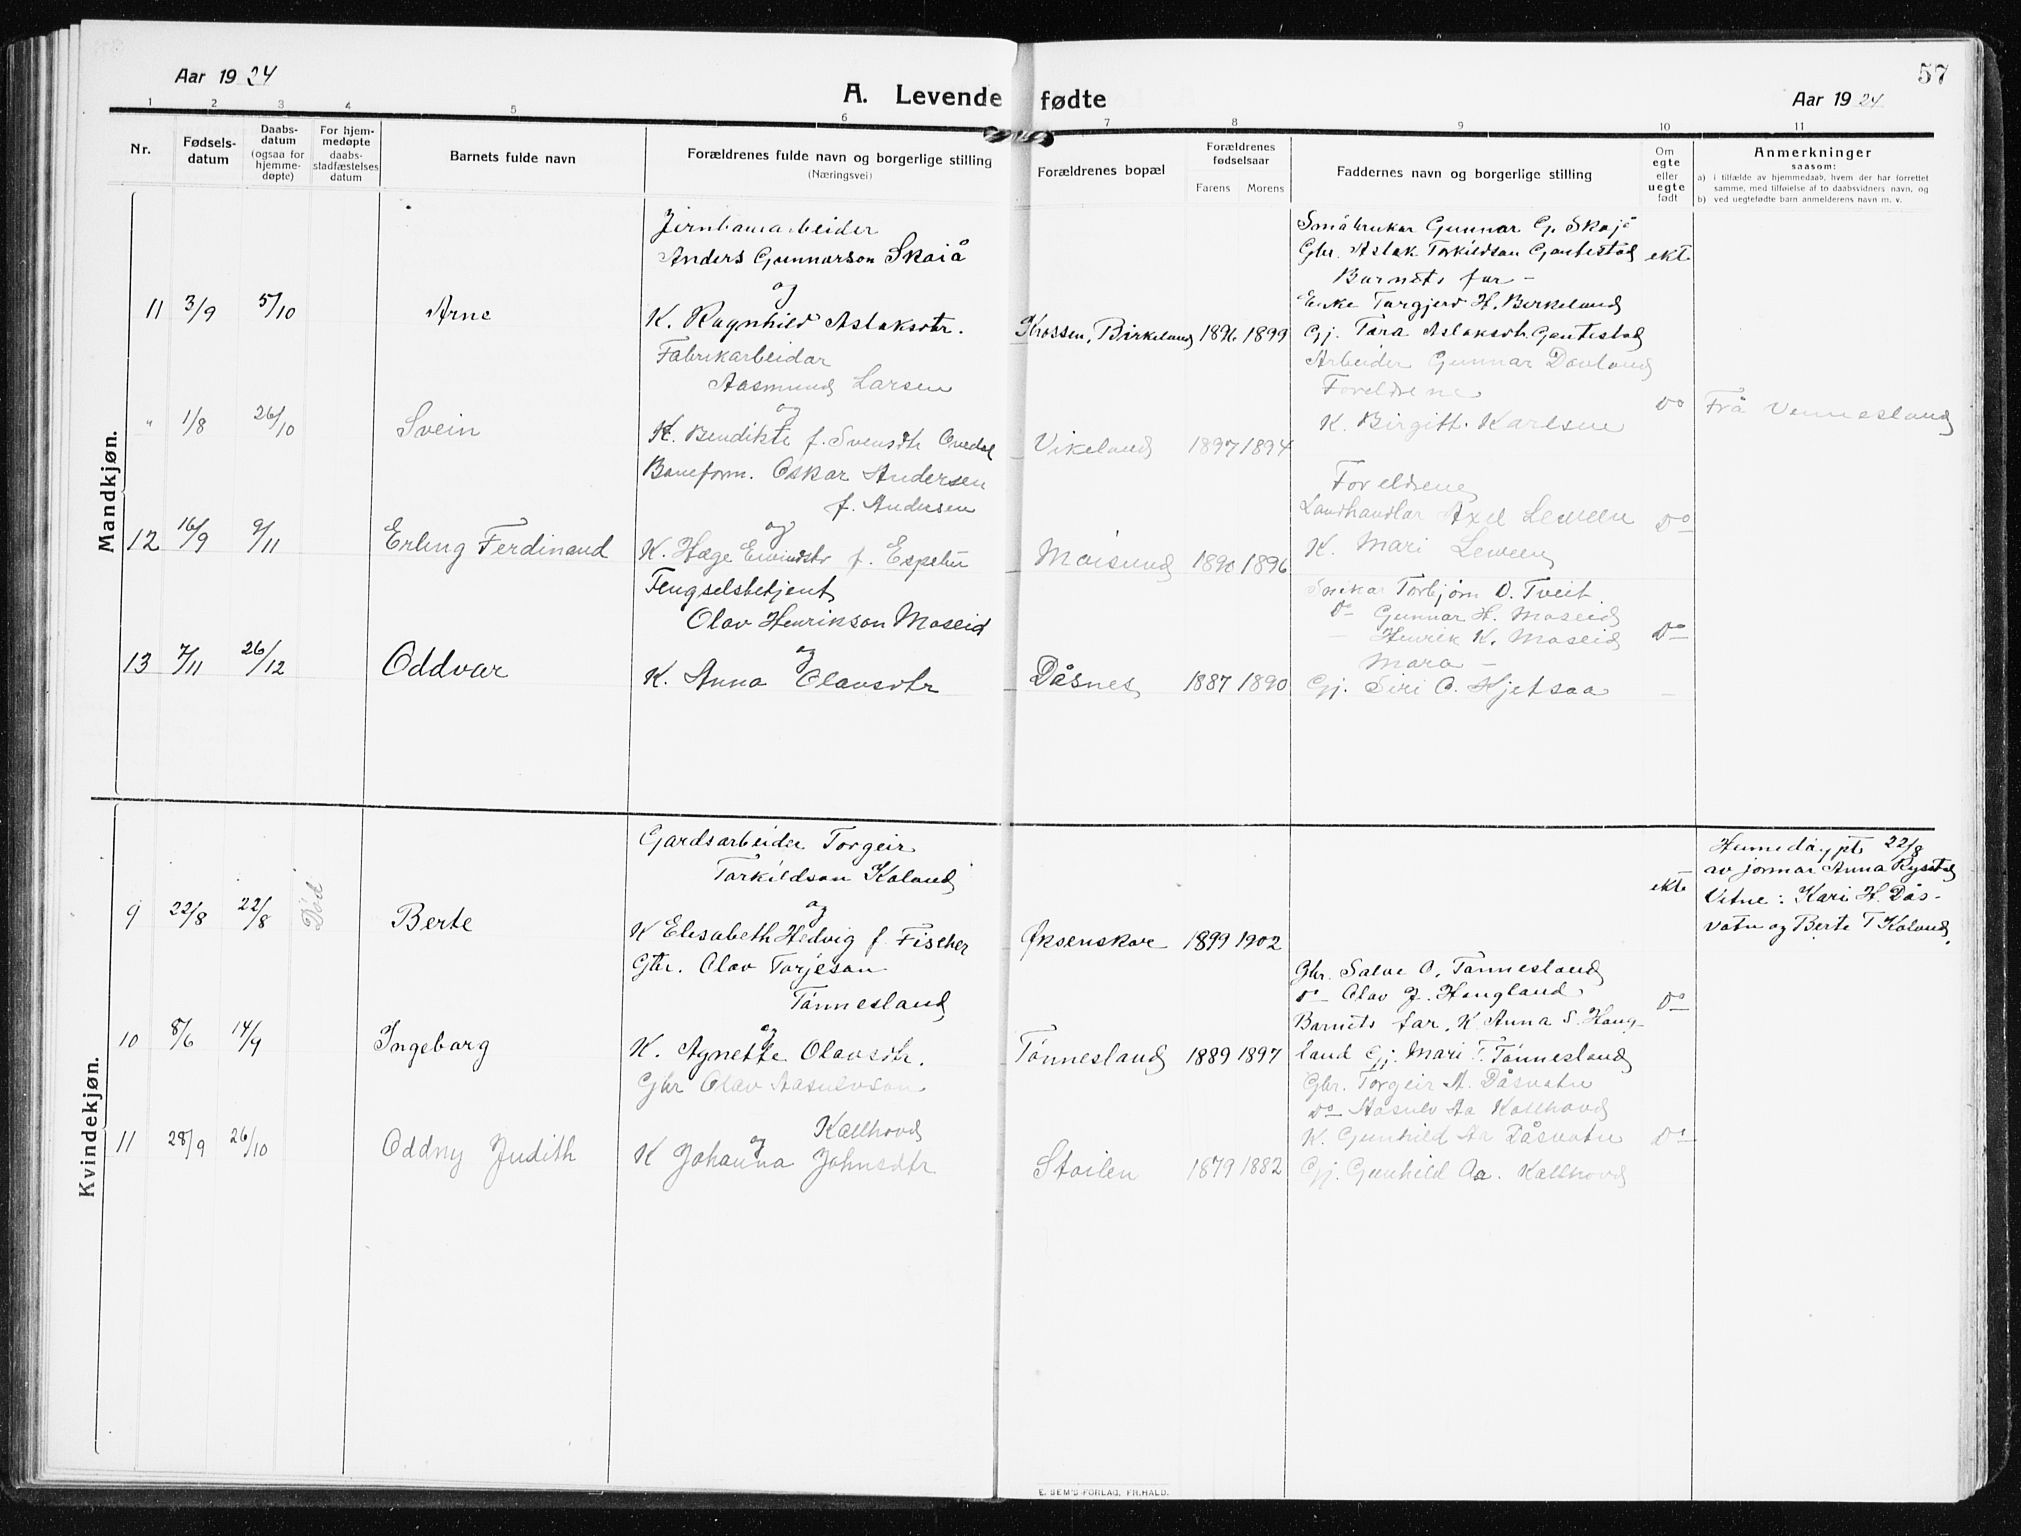 57
Aar 1924
A. Levende fødte
Aar 1924
1 2 3 4 5 6 7 8 9 10 11
Nr.
Fødsels-
datum
Daabs-
datum
(ogsaa for
hjemme-
døpte)
For hjem-
medøpte
daabs-
stadfæstelses
datum
Barnets fulde navn
Forældrenes fulde navn og borgerlige stilling
(Næringsvei)
Forældrenes bopæl
Forældrenes
fødselsaar
Farens Morens
Faddernes navn og borgerlige stilling
Om
egte
eller
uegte
født
Anmerkninger
saasom:
a) i tilfælde av hjemmedaab, hvem der har forrettet
samme, med tilføielse af to daabsvidners navn, og
b) ved uegtefødte barn anmelderens navn m. v.
Mandkjøn.
Jernbanarbeider
Anders Gunnarson Skaiå
og
11 3/9 5/10 Arne K. Ragnhild Aslaksdtr. Krossen, Birkeland 1896 1899
Småbrukar Gunnar G. Skajå
Gbr. Aslak Torkildson Gautestad ekt
Barnets far –
Enke Torgjerd H. Birkeland
Gj. Tora Aslaksdtr. Gautestad
Fabrikarbeidar
Aasmund Larsen
og
" 1/8 26/10 Svein K. Bendikte f. Svensdtr Ovedal Vikeland 1897 1894
Arbeider Gunnar Dovland
Foreldrene
K. Birgitt. Karlsen
Do Frå Vennesland
Baneform. Oskar Andersen
f. Andersen
og
12 16/9 9/11 Erling Ferdinand K. Hæge Eivindsdtr f. Espetu Moisund 1890 1896
Foreldrene
Landhandlar Axel Leween Do
K. Mari Leween
Fengselsbetjent
Olav Henrikson Moseid
og
13 7/11 26/12 Oddvar K. Anna Olavsdtr Dåsnes 1887 1890
Snikar Torbjørn O. Tveit
Do Gunnar H. Moseid
– Henrik K. Moseid Do
Mora –
Gj. Siri O. Kjetsaa –
Kvindekjøn.
Gardsarbeider Torgeir
Torkildson Kaland
og
9 22/8 22/8 Død Berte K Elisabeth Hedvig f. Fischer Øksenskar 1899 1902
ekte
Heimedøypt 22/8
av jormor Anna Rysstad
Vitne: Kari H. Dås-
vatn og Berte T Kaland.
Gbr. Olav Torjeson
Tønnesland
og
10 8/6 14/9 Ingeborg K. Agnette Olavsdtr. Tønnesland 1889 1897
Gbr. Salve O. Tønnesland
Do Olav J. Haugland Do
Barnets far, K. Anna S. Haug-
land Gj. Mari T. Tønnesland
Gbr Olav Aasulvson
Kallhovd
og
11 28/9 26/10 Oddny Judith K Johanna Johnsdtr Stoilen 1879 1882
Gbr. Torgeir A. Dåsvatn
Do Aasulv Aa Kallhovd
K. Gunhild Aa Dåsvatn Do
Gj. Gunhild Aa. Kallhovd
E. SEM'S FORLAG, FR.HALD.